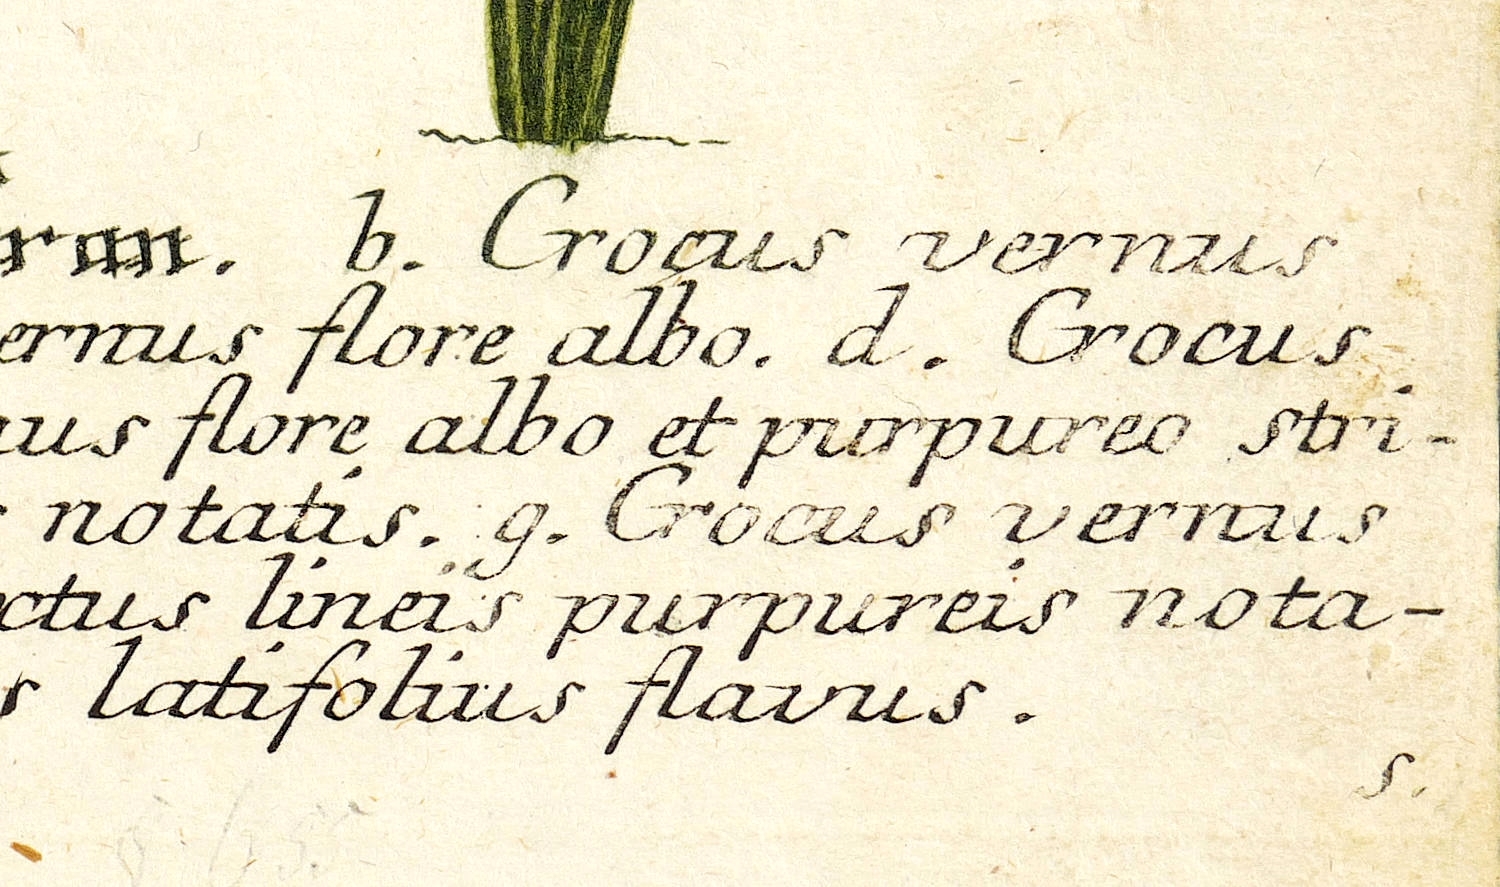 b. Crocus vernus
ernus flore albo. d. Crocus
us flore albo et purpureo stri-
notatis. g. Crocus vernus
ctus lineis purpureis nota-
s latifolius flavus.
s.